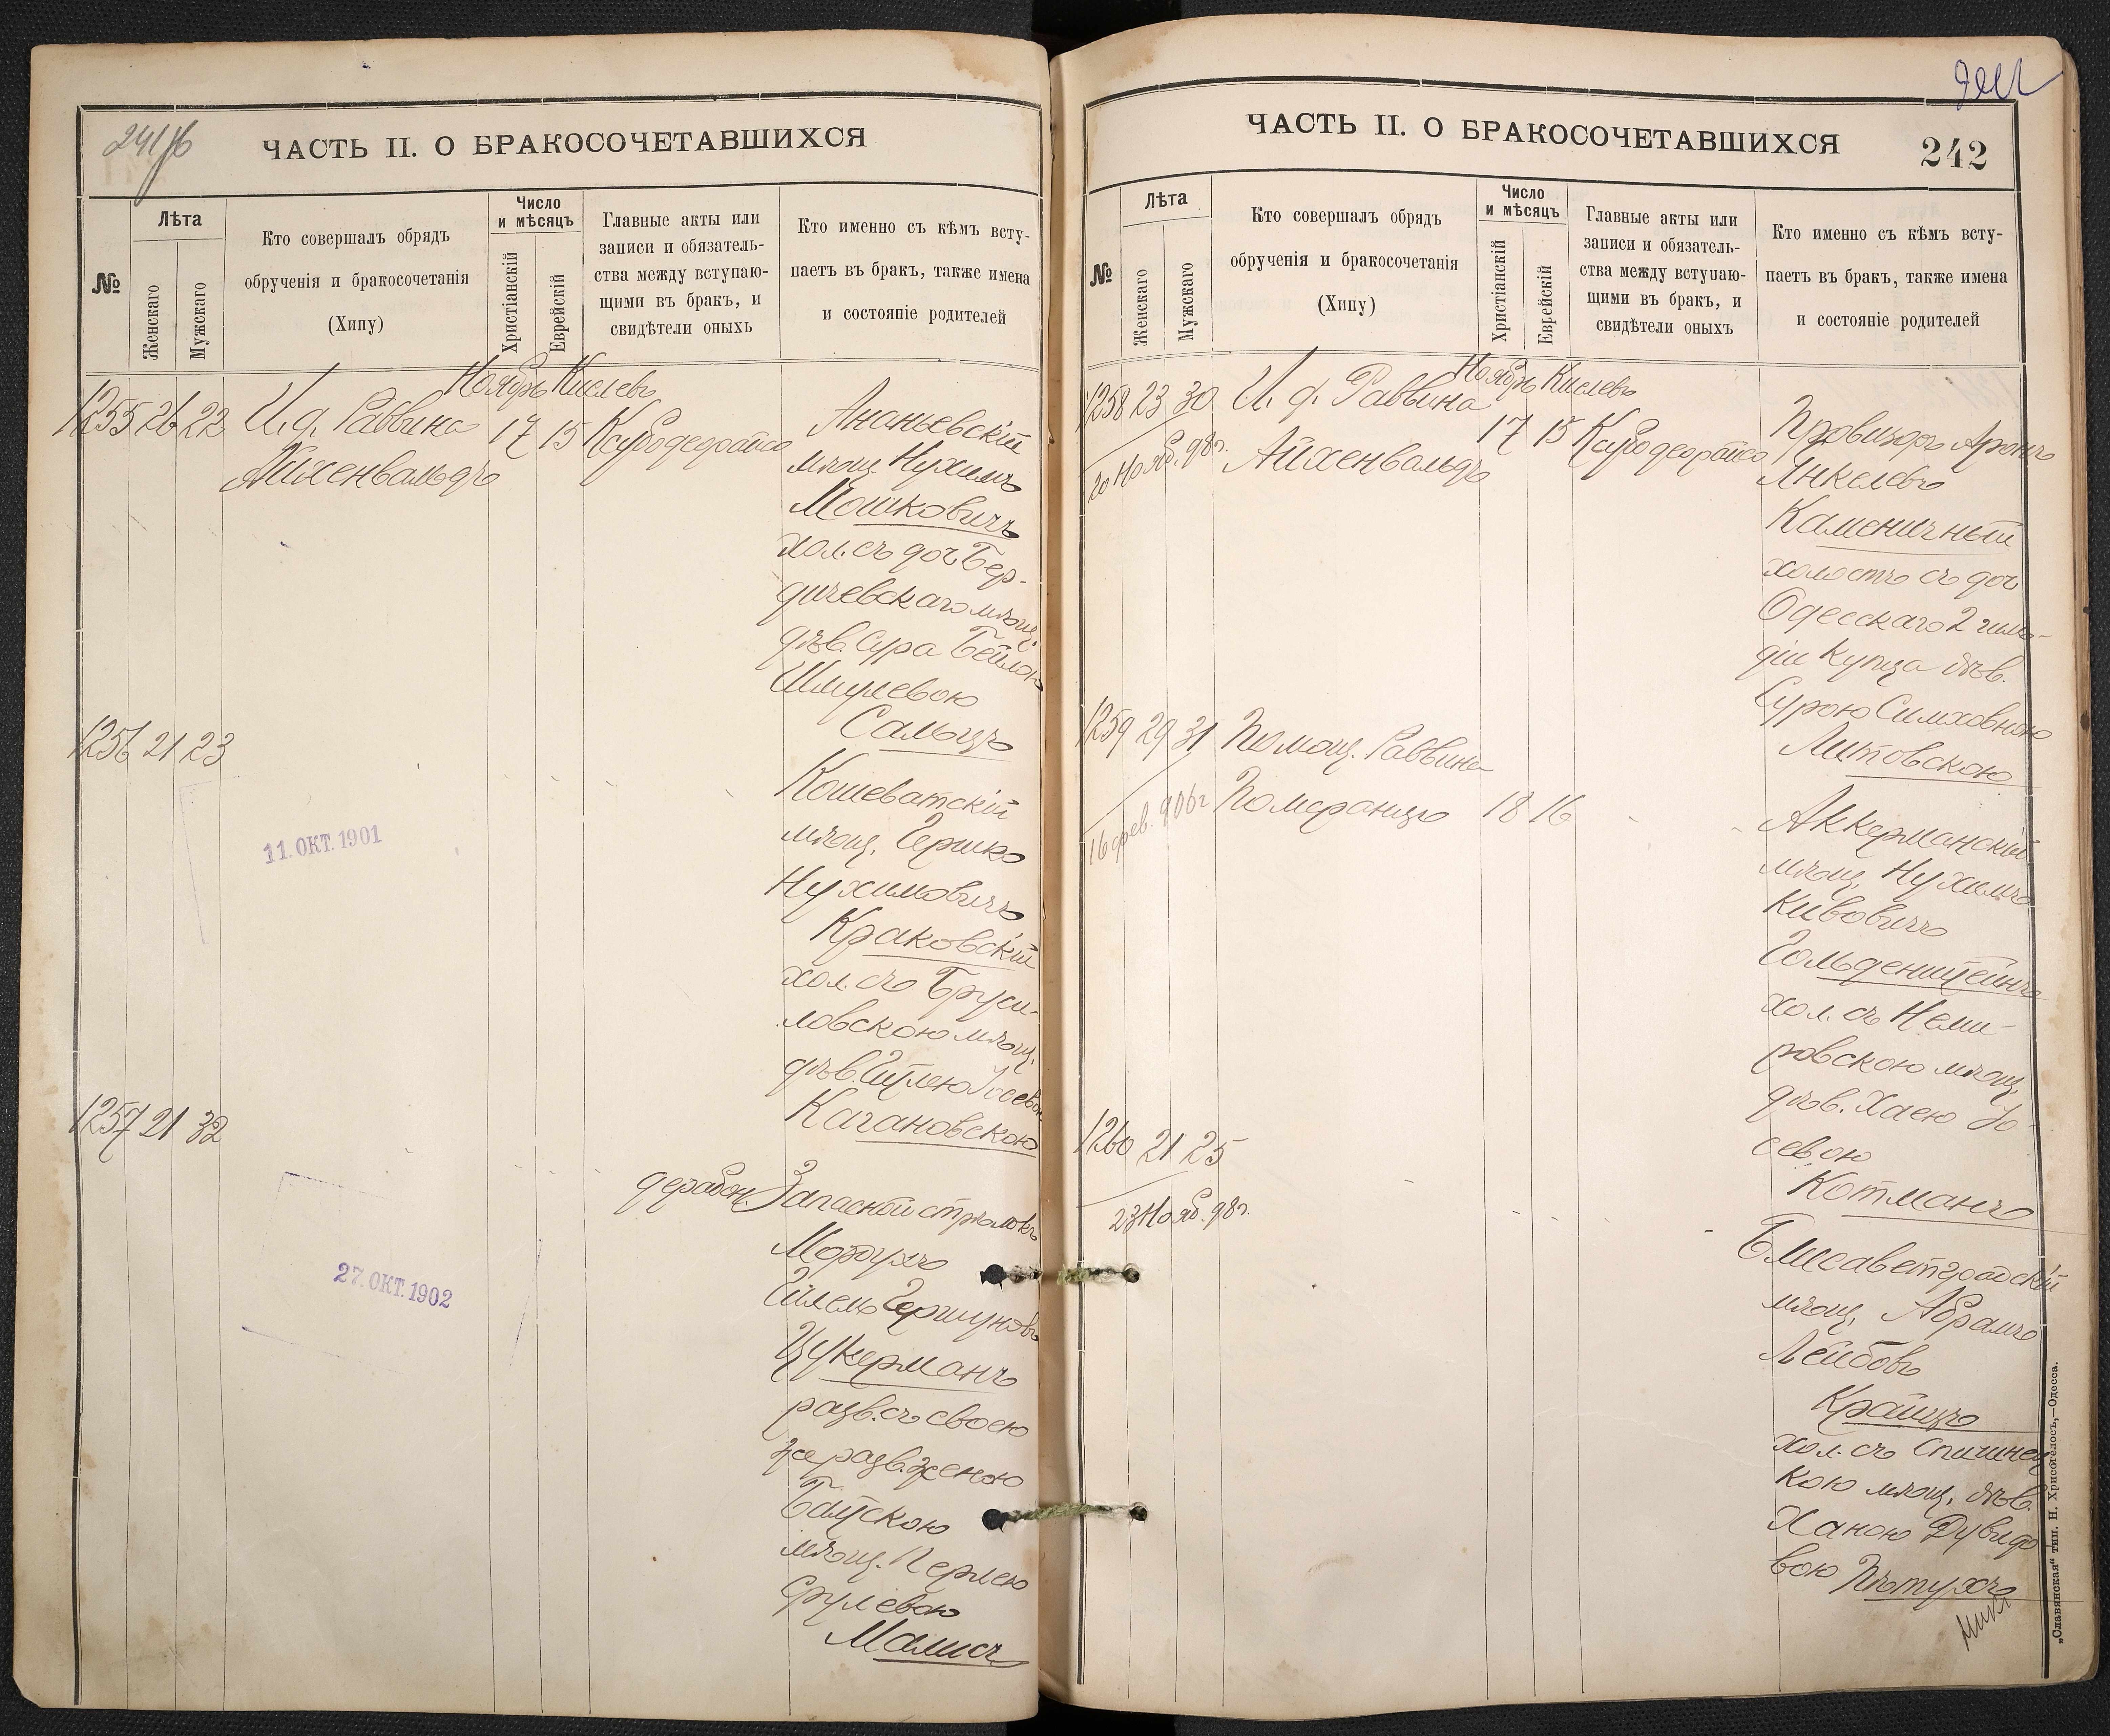 241/б
ЧАСТЬ II. О БРАКОСОЧЕТАВШИХСЯ
№
Лѣта
Женскаго
Мужскаго
Кто совершалъ обрядъ
обрученія и бракосочетанія
(Хипу)
Число
и мѣсяцъ
Христіанскій
Еврейскій
Главные акты или
записи и обязатель-
ства между вступаю-
щими въ бракъ, и
свидѣтели оныхъ
Кто именно съ кѣмъ всту-
паетъ въ бракъ, также имена
и состояніе родителей
Ноябрь Кислевъ
1255 26 22 И. д. Раввина 17 15
Айхенвальдъ
Ананьевскій
мѣщ. Нухимъ
Мошковичъ
хол. съ доч Бер-
дичевскаго мѣщ.
дѣв. Сура Бейлою
Шмулевою
1256 21 23
Кошеватскій
мѣщ. Гершко
Нухимовичъ
Краковскій
хол. съ Бруси-
ловскою мѣщ.
дѣв.
Кагановскою
11. ОКТ. 1901
1257 21 32
Запасной стрѣлокъ
Мордухъ
Гершуновъ
Цукерманъ
разв. съ своею
же разв. женою
мѣщ. Перлею
Срулевою
27. ОКТ. 1902
ЧАСТЬ II. О БРАКОСОЧЕТАВШИХСЯ
242
№
Лѣта
Женскаго
Мужскаго
Кто совершалъ обрядъ
обрученія и бракосочетанія
(Хипу)
Число
и мѣсяцъ
Христіанскій
Еврейскій
Главные акты или
записи и обязатель-
ства между вступаю-
щими въ бракъ, и
свидѣтели оныхъ
Кто именно съ кѣмъ всту-
паетъ въ бракъ, также имена
и состояніе родителей
Ноябрь Кислевъ
1258 23 30 И. д. Раввина 17 15
20 Нояб. 98г. Айхенвальдъ
Провизоръ Аронъ
Янкелевъ
Каменичный
холостъ съ доч
Одесскаго 2 гиль-
діи купца дѣв.
Сурою Симховною
Литовскою
1259 29 31 Помощ. Раввина
16 фев. 906г Померанцъ 18 16
Аккерманскій
мѣщ. Нухимъ
Кивовичъ
Гольденштейнъ
хол. съ Неми-
ровскою мѣщ.
дѣв. Хаею Іо-
севою
Котманъ
1260 21 25
23 Нояб. 98г.
Елисаветградскій
мѣщ. Абрамъ
Лейбовъ
Крайцъ
хол. съ Спичинец
кою мѣщ. дѣв.
Ханою Дувидо
вою Пѣтухъ
„Славянская“ тип. Н. Хрисогелосъ,—Одесса.